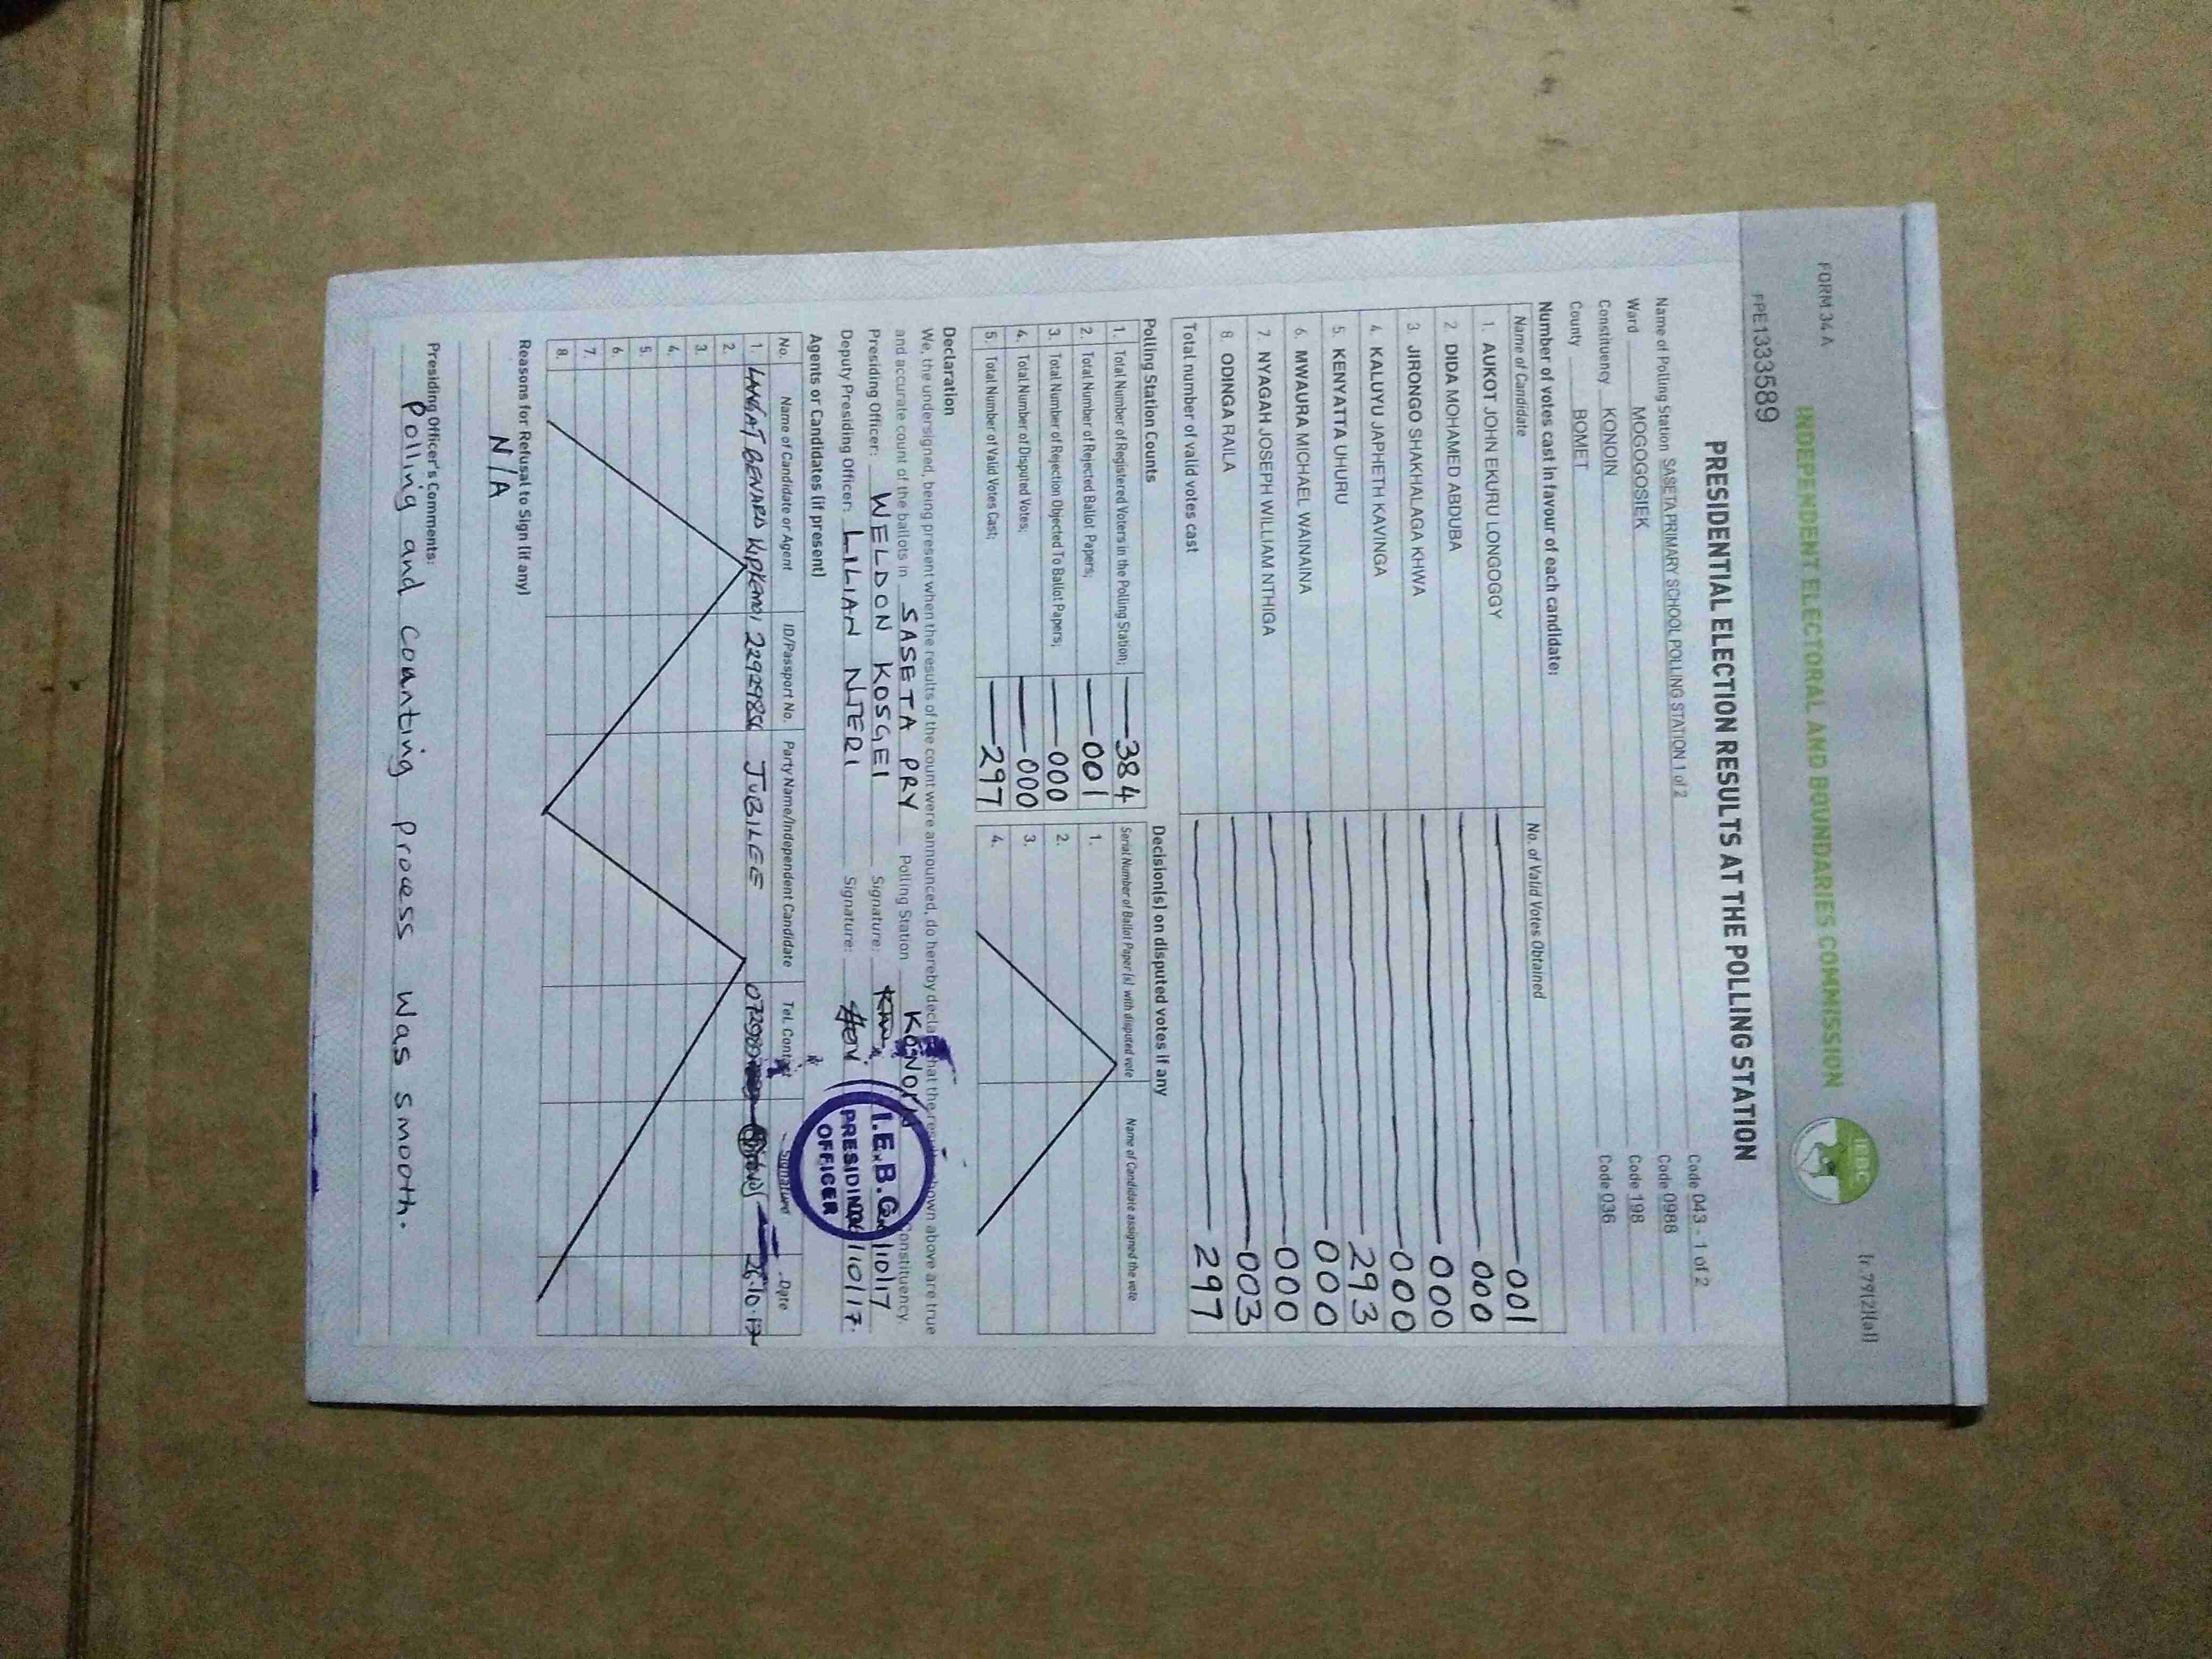 FORM 34 A
[r.79(2)(a)]
INDEPENDENT ELECTORAL AND BOUNDARIES COMMISSION
IEBC
FPE1333589
PRESIDENTIAL ELECTION RESULTS AT THE POLLING STATION
Name of Polling Station SASETA PRIMARY SCHOOL POLLING STATION 1 of 2 Code 043 - 1 of 2
Ward MOGOGOSIEK Code 0988
Constituency KONOIN Code 198
County BOMET Code 036
Number of votes cast in favour of each candidate:
Name of Candidate No. of Valid Votes Obtained
1. AUKOT JOHN EKURU LONGOGGY 001
2. DIDA MOHAMED ABDUBA 000
3. JIRONGO SHAKHALAGA KHWA 000
4. KALUYU JAPHETH KAVINGA 000
5. KENYATTA UHURU 293
6. MWAURA MICHAEL WAINAINA 000
7. NYAGAH JOSEPH WILLIAM NTHIGA 000
8. ODINGA RAILA 003
Total number of valid votes cast 297
Polling Station Counts
1. Total Number of Registered Voters in the Polling Station; 384
2. Total Number of Rejected Ballot Papers; 001
3. Total Number of Rejection Objected To Ballot Papers; 000
4. Total Number of Disputed Votes; 000
5. Total Number of Valid Votes Cast; 297
Decision(s) on disputed votes if any
Serial Number of Ballot Paper (s) with disputed vote Name of Candidate assigned the vote
1.
2.
3.
4.
Declaration
We, the undersigned, being present when the results of the count were announced, do hereby declare that the results shown above are true
and accurate count of the ballots in SASETA PRY Polling Station KONOIN Constituency.
Presiding Officer: WELDON KOSGEI Signature: /10/17
Deputy Presiding Officer: LILIAN NJERI Signature: /10/17.
I.E.B.C.
PRESIDING
OFFICER
Agents or Candidates (if present)
No. Name of Candidate or Agent ID/Passport No. Party Name/Independent Candidate Tel. Contact Signature Date
1. LANGAT BENARD KIPKEMOI 22929856 JUBILEE 26.10.17
2.
3.
4.
5.
6.
7.
8.
Reasons for Refusal to Sign (if any)
N/A
Presiding Officer's Comments:
Polling and Counting process was smooth.